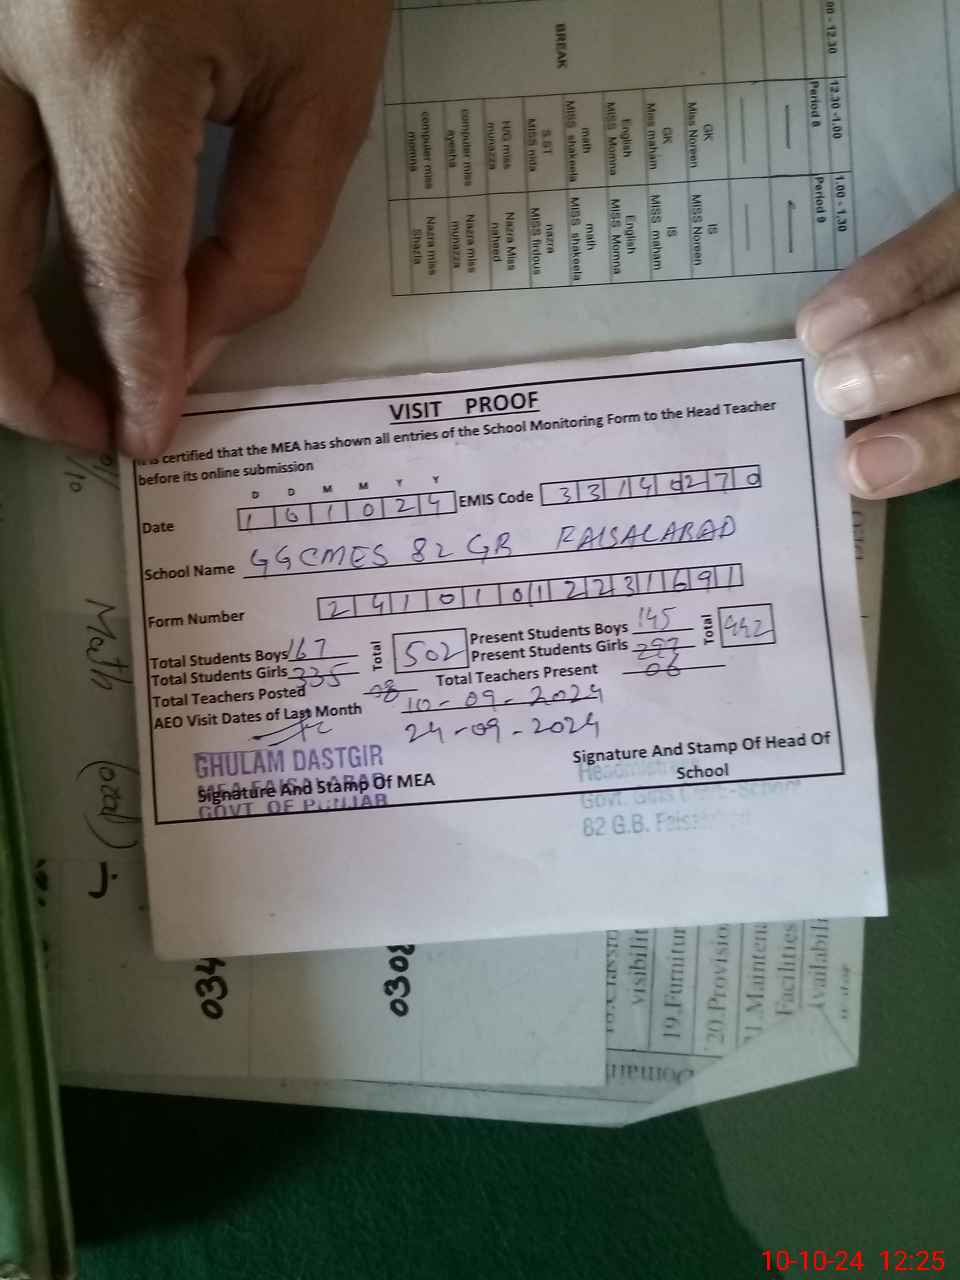 VISIT PROOF
certified that the MEA has shown all entries of the School Monitoring Form to the Head Teacher
before its online submission
D D M M Y Y
Date 1 0 1 0 2 4 EMIS Code 3 3 1 4 0 2 7 0
School Name GGCMES 82 GB FAISALABAD
Form Number 2 4 1 0 1 0 1 2 2 3 1 6 9 1
Total Students Boys 167 Total 502 Present Students Boys 145 Total 442
Total Students Girls 335 Present Students Girls 297
Total Teachers Posted 08 Total Teachers Present 06
AEO Visit Dates of Last Month 10-09-2024
24-09-2024
GHULAM DASTGIR
MEA FAISALABAD
Signature And Stamp Of MEA
GOVT OF PUNJAB
Signature And Stamp Of Head Of
School
Headmistress
Govt. Girls
82 G.B.
BREAK
12.30 -1.00 1.00 - 1.30
Period 8 Period 9
GK IS
Miss Noreen MISS Noreen
GK IS
Miss maham MISS maham
English English
MISS Momna MISS Momna
math math
MISS shakeela MISS shakeela
S.ST nazra
MISS nida MISS firdous
H/G miss Nazra Miss
munazza naheed
computer miss Nazra miss
ayesha munazza
computer miss Nazra miss
momna Shazia
Math (total)
034
0308
visibilit
19.Furnitur
20.Provisio
Maintena
Facilities
Availabili
Domain
10-10-24 12:25